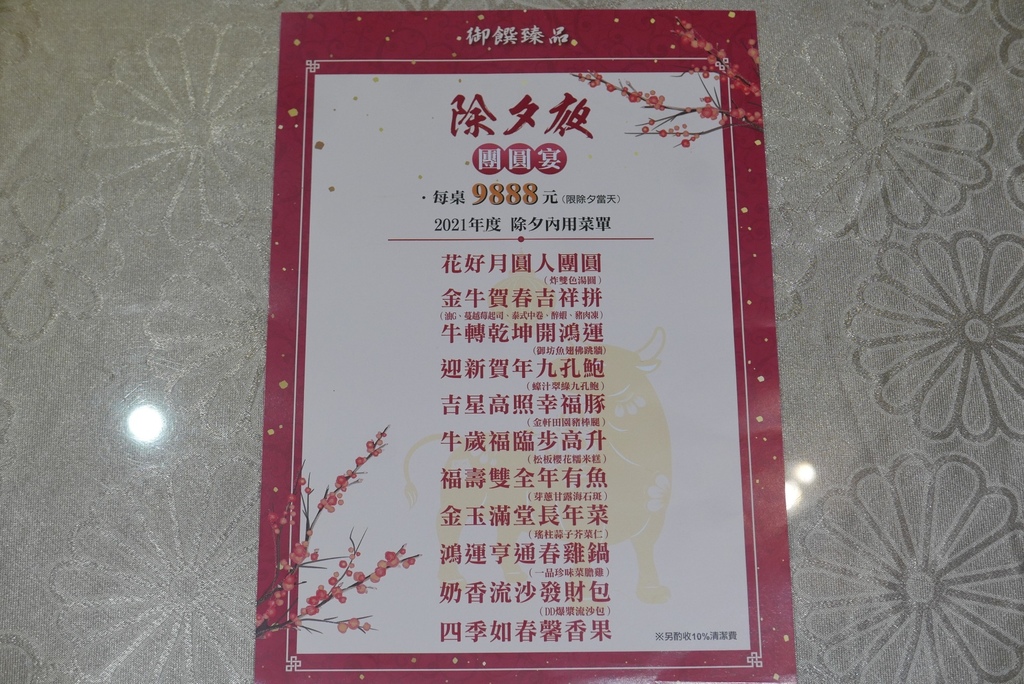 御饌臻品
除夕夜
團圓宴
·每桌9888元(限除夕當天)
2021年度 除夕內用菜單
花好月圓人團圓
(炸雙色湯圓)
金牛賀春吉祥拼
(油G、蔓越莓起司、泰式中卷、醉蝦、豬肉凍)
牛轉乾坤開鴻運
(御坊魚翅佛跳牆)
迎新賀年九孔鮑
(蠔汁翠綠九孔鮑)
吉星高照幸福豚
(金軒田園豬棒腿)
牛歲福臨步高升
(松板櫻花糯米糕)
福壽雙全年有魚
(芽蔥甘露海石斑)
金玉滿堂長年菜
(瑤柱蒜子芥菜仁)
鴻運亨通春雞鍋
(一品珍味菜膽雞)
奶香流沙發財包
(DD爆漿流沙包)
四季如春馨香果
※另酌收10%清潔費